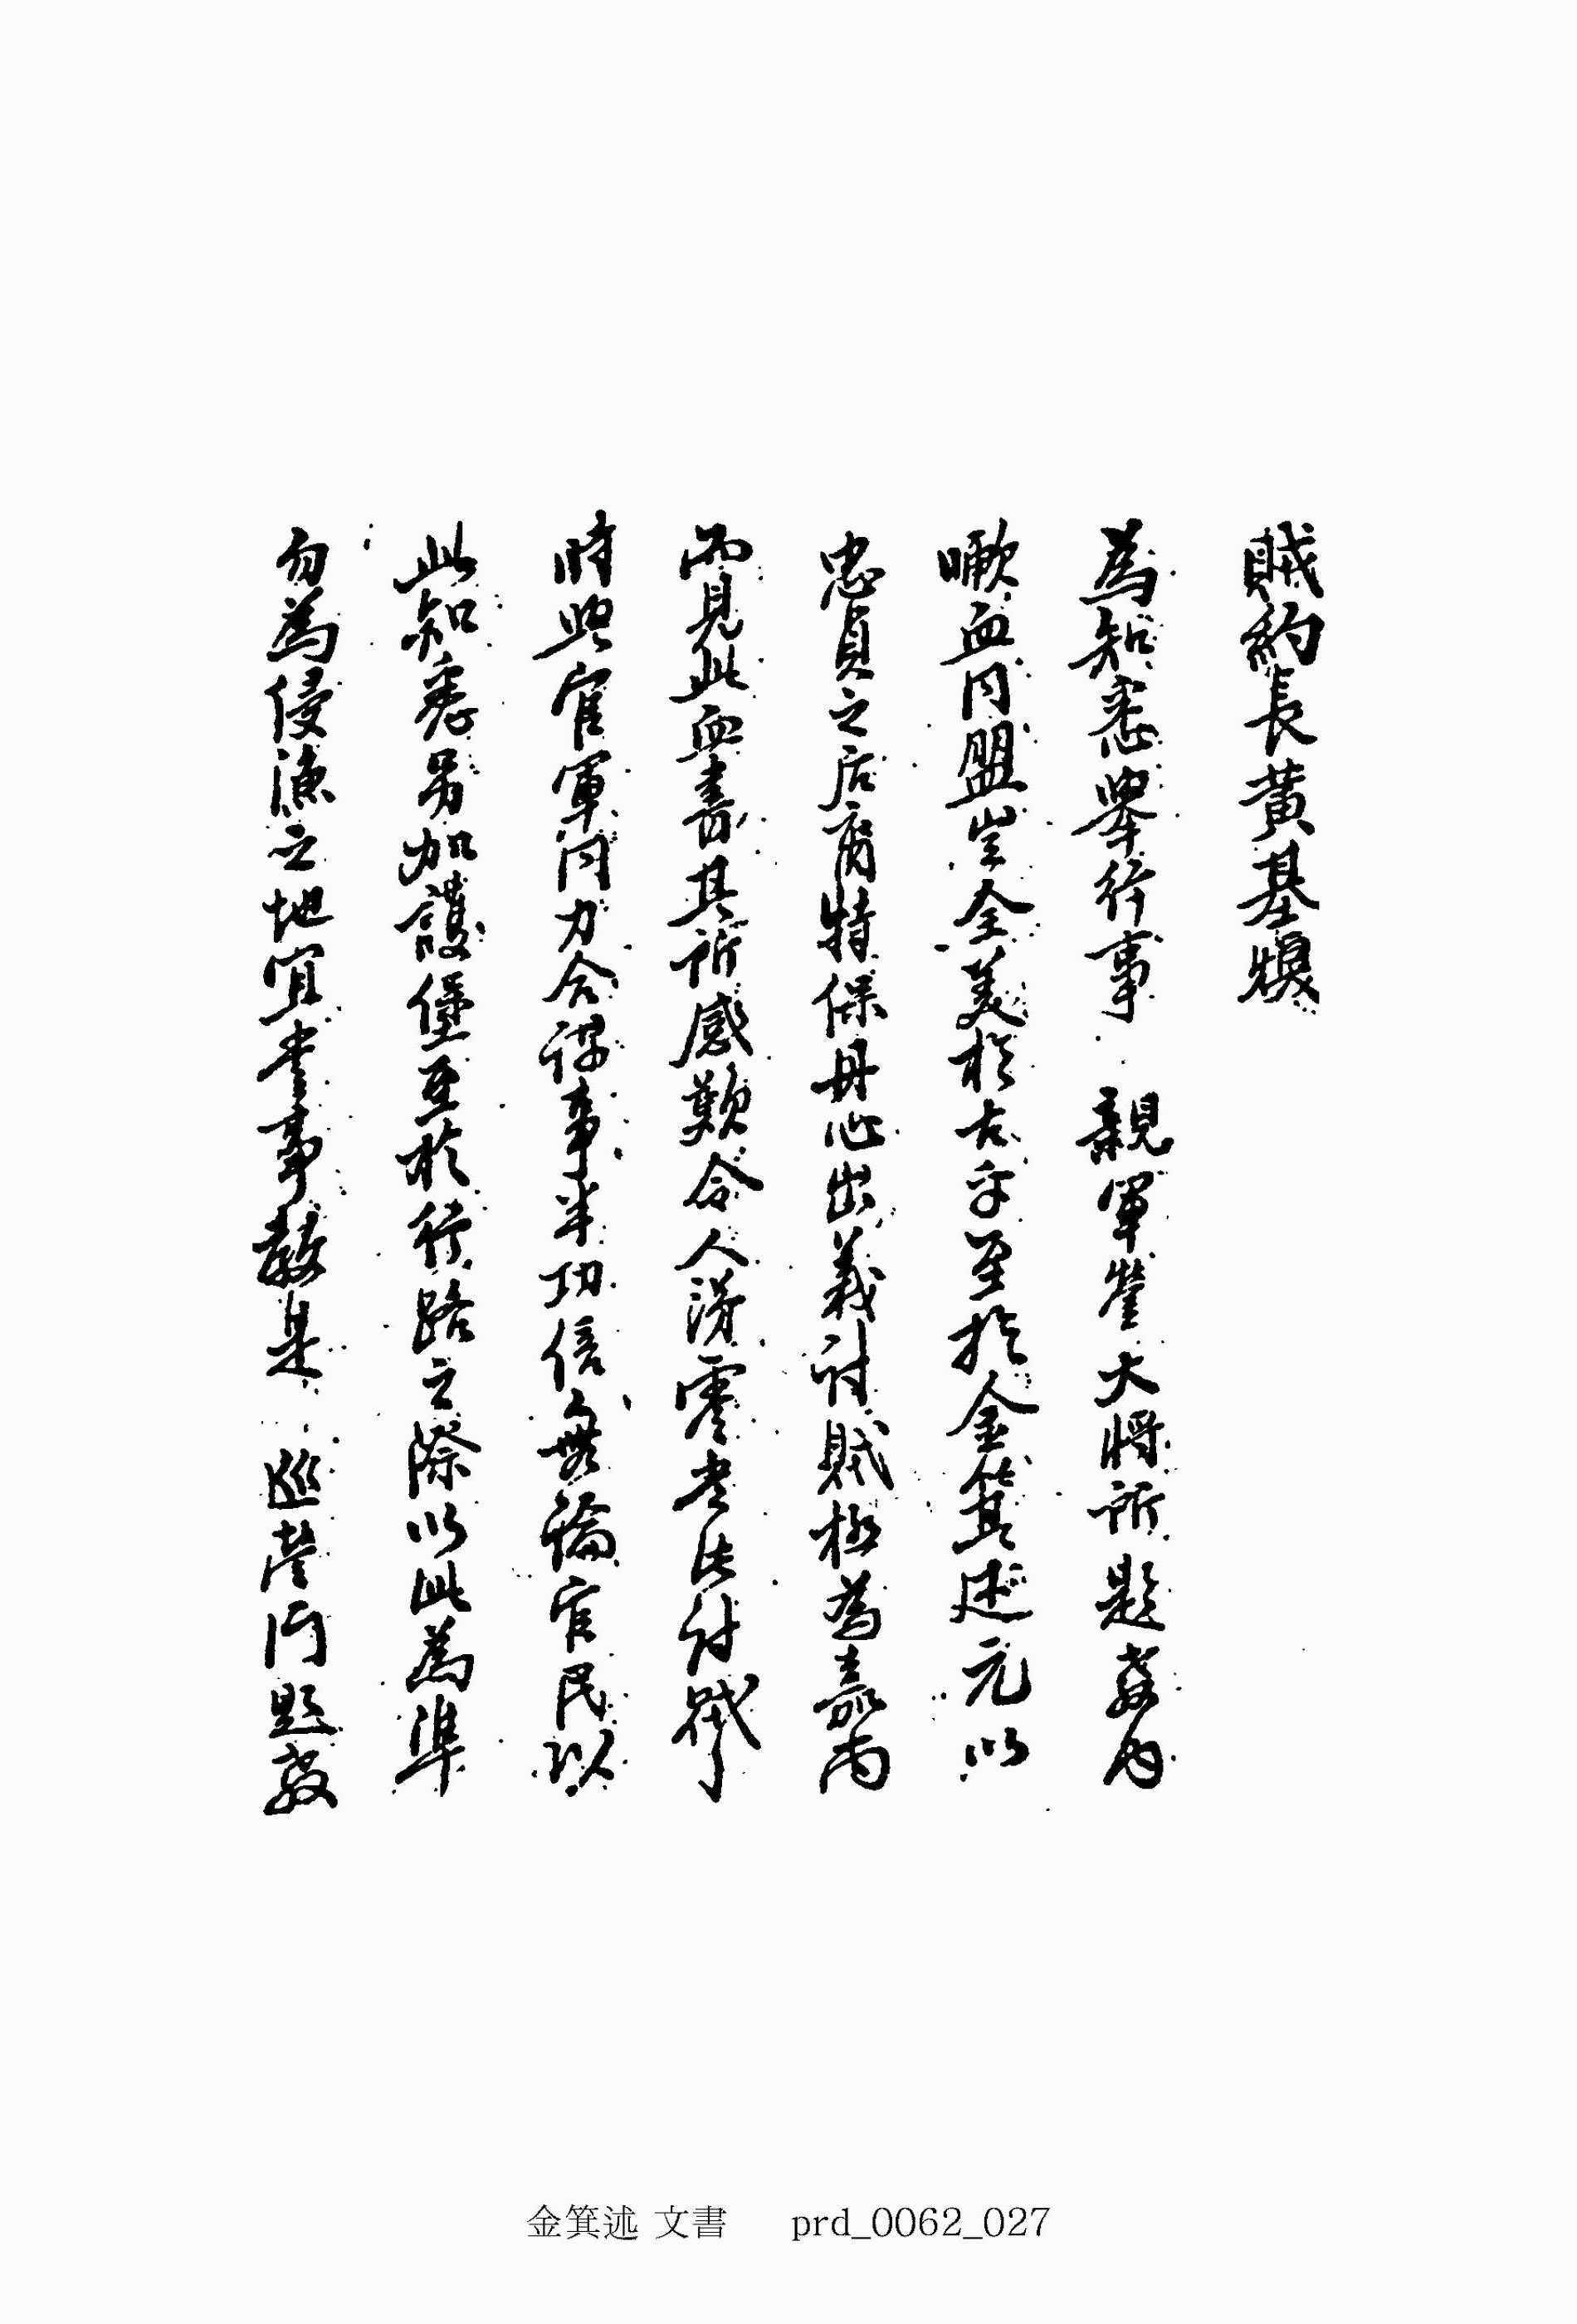 賊約長黃基煥
為知悉擧行事 親軍營大將所題敎內
㗮血同盟豈全美於古乎至於金箕述元以
忠貞之后裔特保丹心出義討賊極為嘉尙
而見此血書其所感歎令人涕零者法討賊了
時與官軍同力合謀事半功倍矣無論官民以
此知悉另加護堡至於行路之際以此為準
勿為侵漁之地宜當事敎是 巡營門題敎
金箕述 文書 prd_0062_027